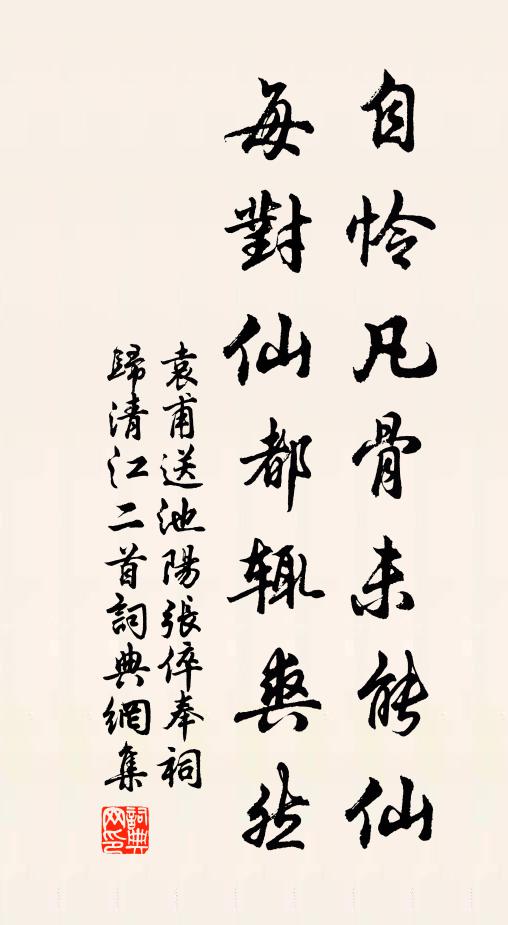 自怜凡骨未能仙
每對仙都辄爽然
袁甫送池陽張倅奉祠
歸清江二首詞典網集
詞典
网印